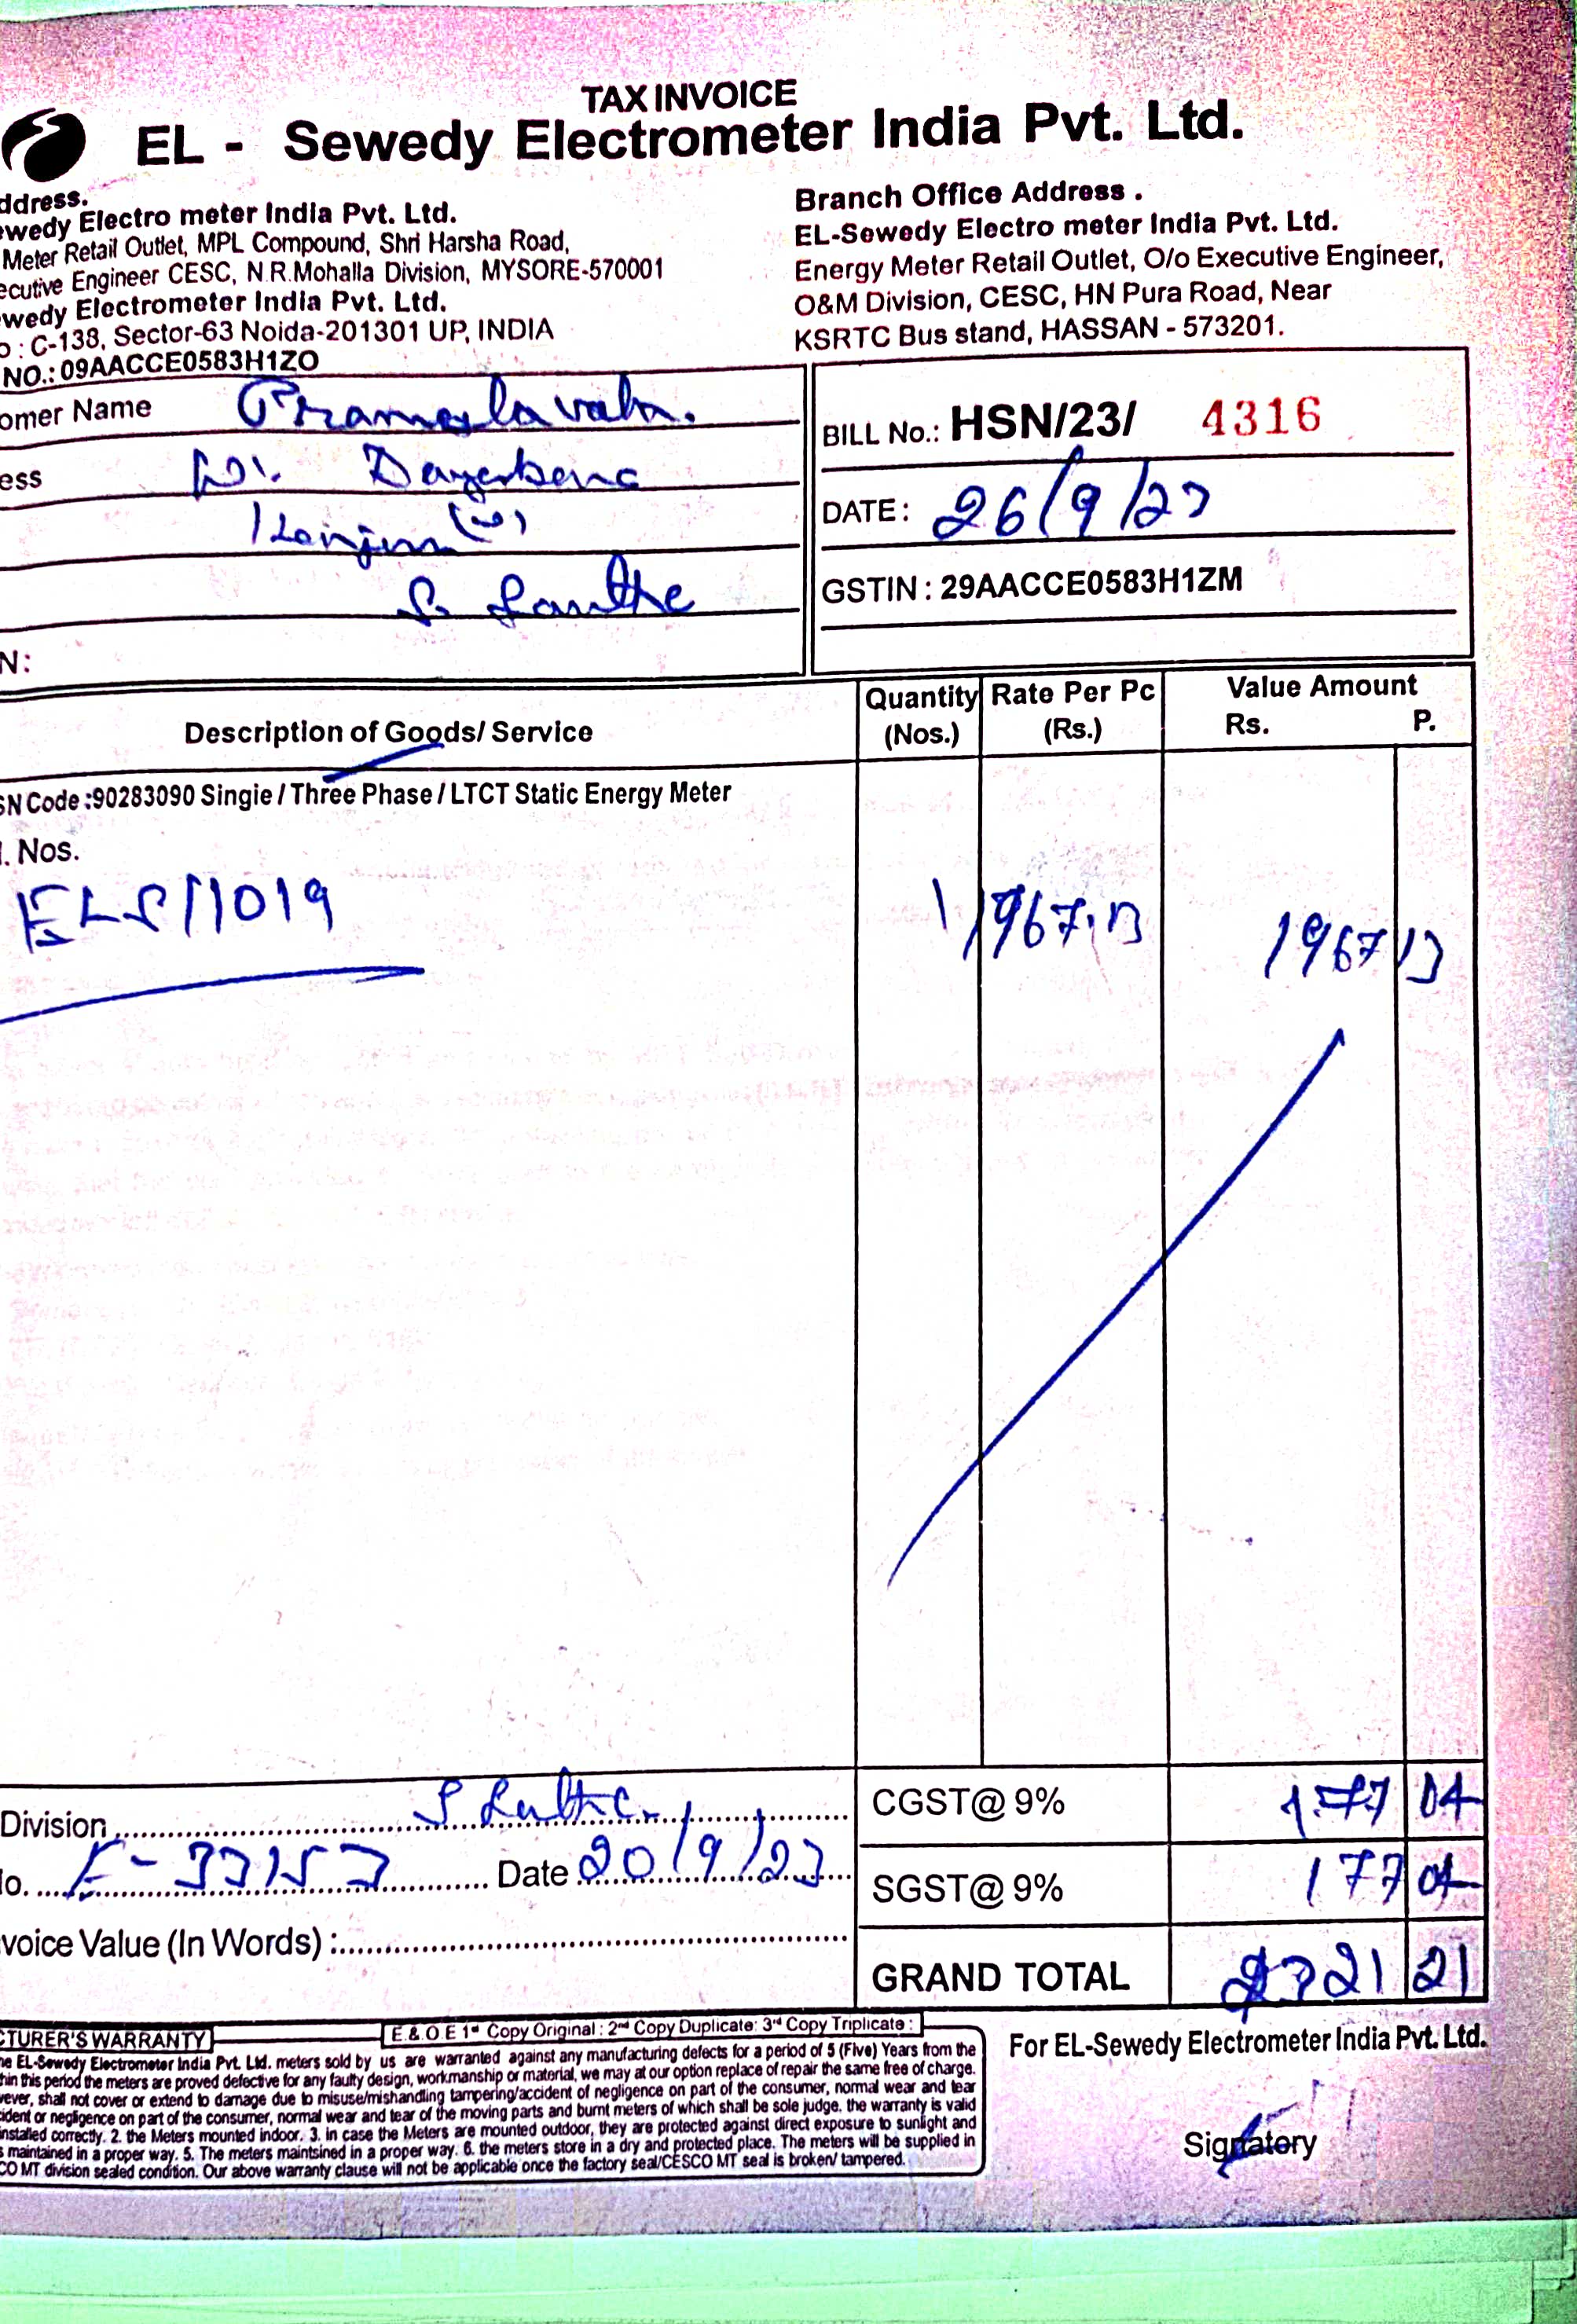 TAX INVOICE
EL - Sewedy Electrometer India Pvt. Ltd.
ddress.
wedy Electro meter India Pvt. Ltd.
Meter Retail Outlet, MPL Compound, Shri Harsha Road,
ecutive Engineer CESC, N.R.Mohalla Division, MYSORE-570001
wedy Electrometer India Pvt. Ltd.
o : C-138, Sector-63 Noida-201301 UP, INDIA
NO.: 09AACCE0583H1ZO
Branch Office Address .
EL-Sewedy Electro meter India Pvt. Ltd.
Energy Meter Retail Outlet, O/o Executive Engineer,
O&M Division, CESC, HN Pura Road, Near
KSRTC Bus stand, HASSAN - 573201.
omer Name
ess
N:
BILL No.: HSN/23/ 4316
DATE : 26/9/23
GSTIN : 29AACCE0583H1ZM
Description of Goods/ Service
Quantity (Nos.)
Rate Per Pc (Rs.)
Value Amount
Rs. P.
SN Code :90283090 Singie / Three Phase / LTCT Static Energy Meter
. Nos.
ELS11019 1 1967.13 1967 13
Division
CGST@ 9% 177 04
o. Date 20/9/23
SGST@ 9% 177 04
voice Value (In Words) :
GRAND TOTAL 2321 21
CTURER'S WARRANTY
E & O E 1st Copy Original : 2nd Copy Duplicate: 3rd Copy Triplicate :
e EL-Sewedy Electrometer India Pvt. Ltd. meters sold by us are warranted against any manufacturing defects for a period of 5 (Five) Years from the
hin this period the meters are proved defective for any faulty design, workmanship or material, we may at our option replace of repair the same free of charge.
ever, shall not cover or extend to damage due to misuse/mishandling tampering/accident of negligence on part of the consumer, normal wear and tear
ident or negligence on part of the consumer, normal wear and tear of the moving parts and burnt meters of which shall be sole judge. the warranty is valid
installed correctly. 2. the Meters mounted indoor. 3. in case the Meters are mounted outdoor, they are protected against direct exposure to sunlight and
maintained in a proper way. 5. The meters maintsined in a proper way. 6. the meters store in a dry and protected place. The meters will be supplied in
CO MT division sealed condition. Our above warranty clause will not be applicable once the factory seal/CESCO MT seal is broken/ tampered.
For EL-Sewedy Electrometer India Pvt. Ltd.
Signatory